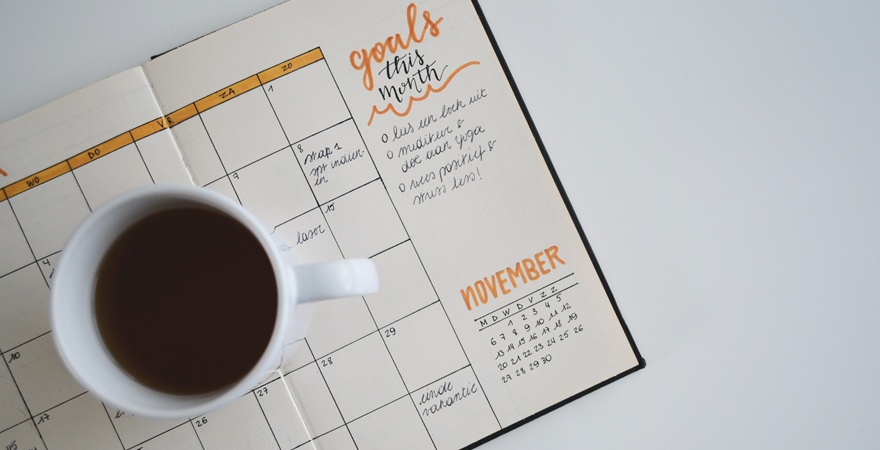 goals
this
month
o lees een boek uit
o mediteer &
doe aan yoga
o wees positief &
stress less!
WO DO VR ZA ZO
1
7 8
stap 1
indien-
en
15
laser
4
10
17
26 27 28 29
einde
vakantie
NOVEMBER
M D W D V Z Z
1 2 3 4 5
6 7 8 9 10 11 12
13 14 15 16 17 18 19
20 21 22 23 24 25 26
27 28 29 30